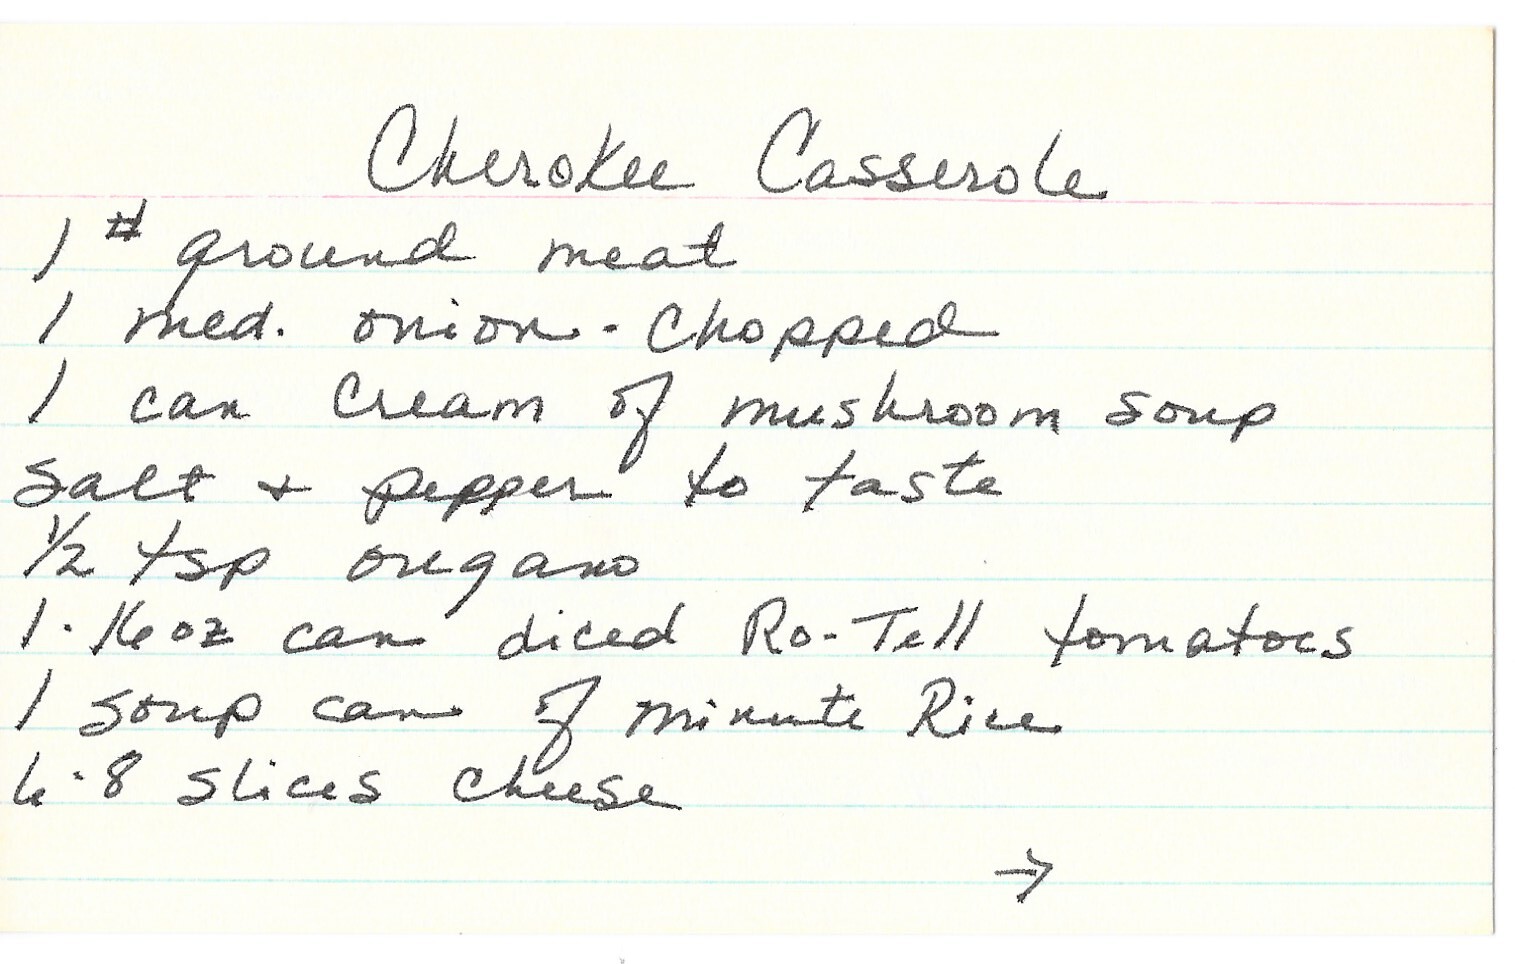 Cherokee Casserole
1 # ground meat
1 med. onion - chopped
1 can cream of mushroom soup
salt + pepper to taste
1/2 tsp oregano
1 - 16 oz can diced Ro-Tell tomatoes
1 soup can of minute Rice
6-8 slices cheese
→